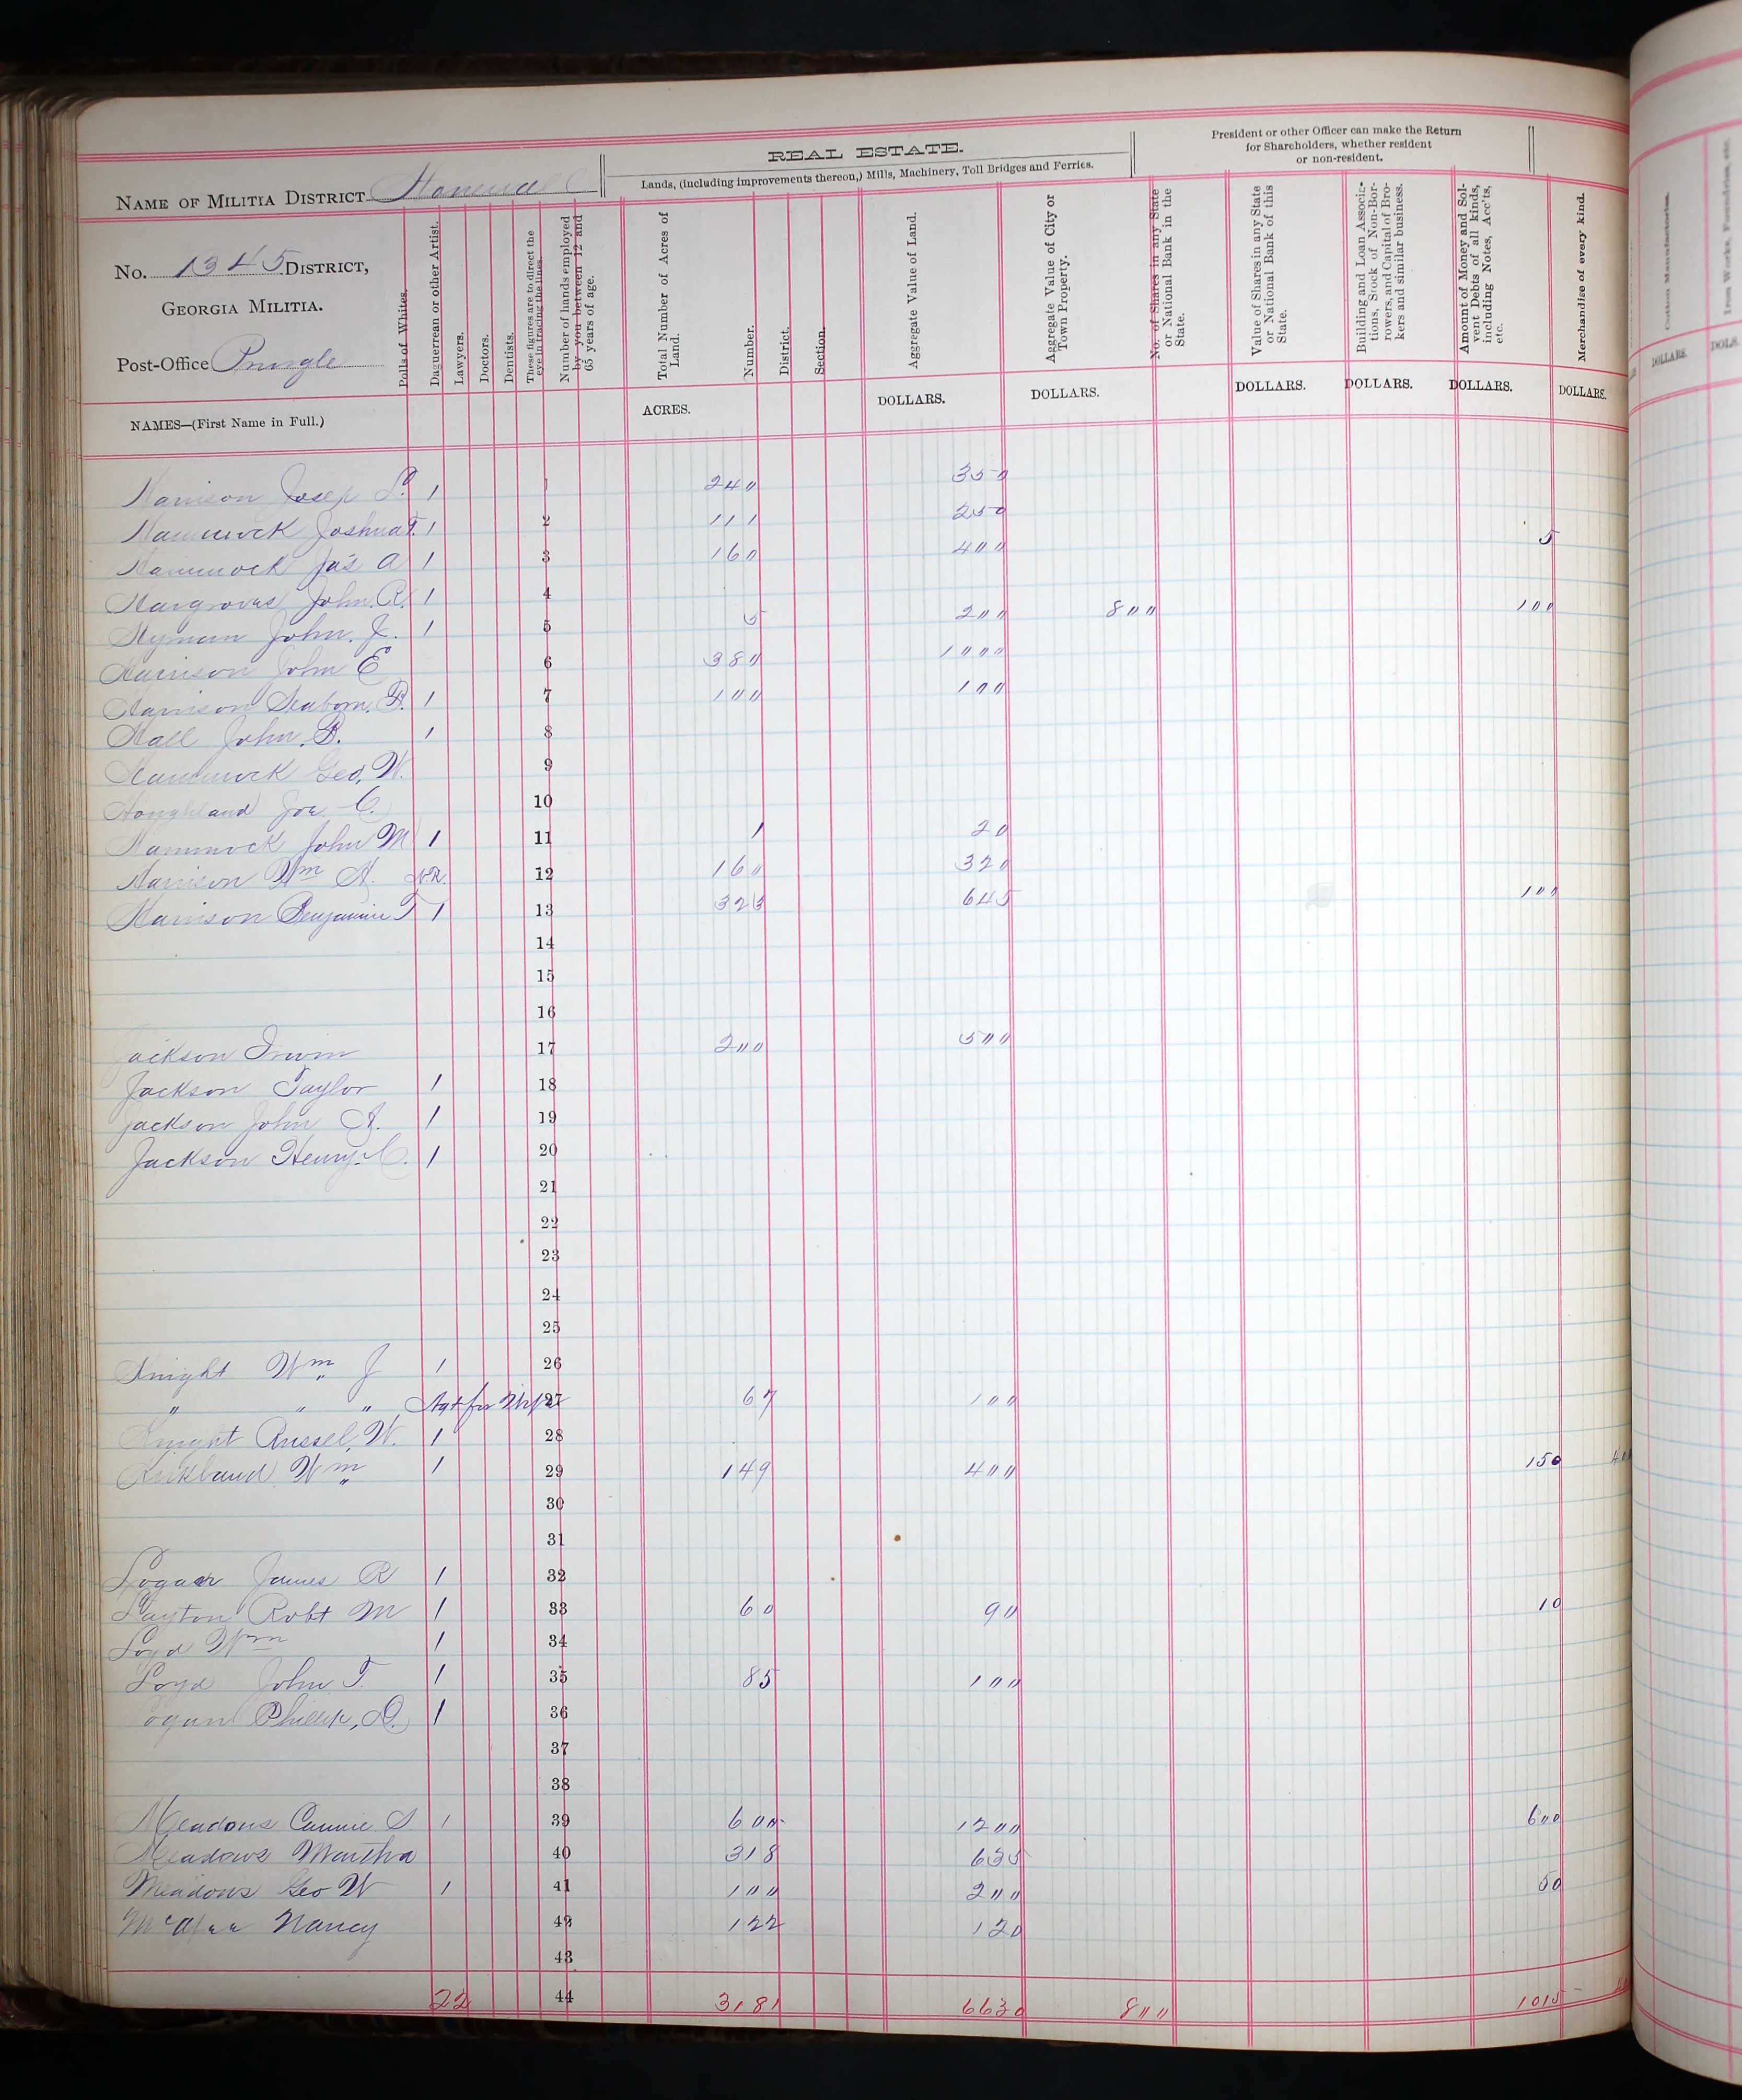 REAL ESTATE.
Lands, (including improvements thereon,) Mills, Machinery, Toll Bridges and Ferries.
President or other Officer can make the Return for Shareholders, whether resident or non-resident.
NAME OF MILITIA DISTRICT
No. 1345 DISTRICT,
GEORGIA MILITIA.
Post-Office Pringle
NAMES—(First Name in Full.)
Polls of Whites.
Daguerrean or other Artist.
Lawyers.
Doctors.
Dentists.
These figures are to direct the eye in tracing the lines.
Number of hands employed by you between 12 and 65 years of age.
Total Number of Acres of Land.
Number.
District.
Section.
Aggregate Value of Land.
Aggregate Value of City or Town Property.
No. of Shares in any State or National Bank in the State.
Value of Shares in any State or National Bank of this State.
Building and Loan Associations, Stock of Non-Borrowers, and Capital of Brokers and similar business.
Amount of Money and Solvent Debts of all kinds, including Notes, Acc'ts, etc.
Merchandise of every kind.
Cotton Manufactories.
Iron Works, Foundries, etc.
ACRES. DOLLARS. DOLLARS. DOLLARS. DOLLARS. DOLLARS. DOLLARS. DOLLARS. DOLS.
Harrison Josep 1 1 240 350
Hammock Joshua T. 1 2 111 250
Hammock Jas A 1 3 160 400 5
Hargroves John R. 1 4
Hyman John J. 1 5 5 200 800 100
Harrison John E 6 380 1000
Harrison Seaborn 1 7 100 100
Hall John B. 1 8
Hammock Geo, W. 9
Houghland Joe C. 10
Hammock John M 1 11 1 20
Harrison Wm H. N.R. 12 160 320
Harrison Benjamin T 1 13 323 645 100
14
15
16
Jackson Irwin 17 200 500
Jackson Taylor 1 18
Jackson John A. 1 19
Jackson Henry C. 1 20
21
22
23
24
25
Knight Wm J 1 26
" " " Agt for Wife 27 67 100
Knight Russel, W. 1 28
Kirkland Wm 1 29 149 400 150
30
31
Logan James R 1 32
Layton Robt M 1 33 60 90 10
Loyd Wm 1 34
Loyd John T. 1 35 85 100
Logan Philip, D. 1 36
37
38
Meadows S 1 39 600 1200 600
Meadows Martha 40 318 635
Meadows Geo W 1 41 100 200 50
McAfee Nancy 42 122 120
43
22 44 3181 6630 800 1015